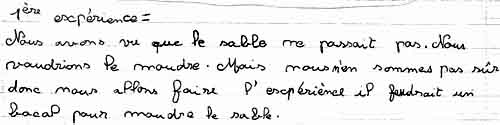 1ère escpérience=
Nous avons vu que le sable ne passait pas. Nous
voudrions le moudre. Mais nous n'en sommes pas sûr
donc nous allons faire l'escpérience il faudrait un
bocal pour moudre le sable.